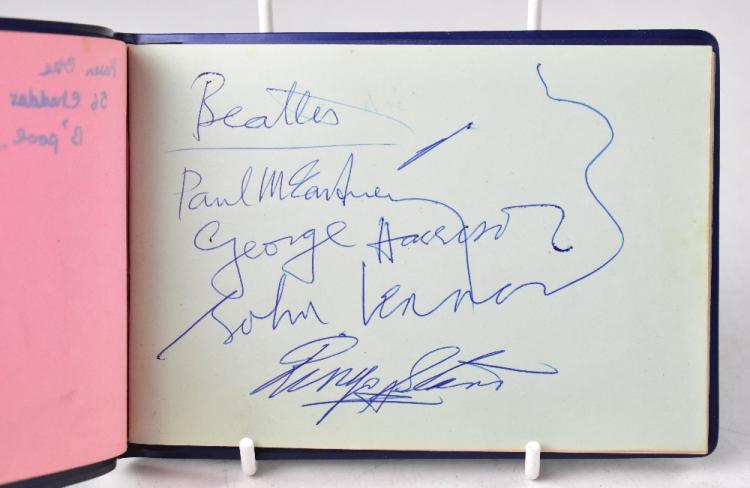 56
B'pool
Beatles
Paul McCartney
George Harrison
John Lennon
Ringo Starr